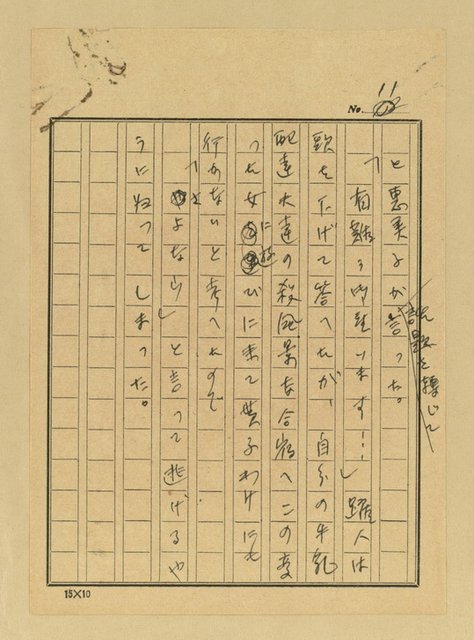 No. 11
と恵美子が言った。
話題を轉じて
「有難う御座います…」躍人は
頭を下げて答へたが、自分の牛乳
配達人達の殺風景な合宿へこの変
った女に遊びに来て貰ふわけにも
行かないと考へたので
「さよなら」と言って逃げるや
うになってしまった。
15×10